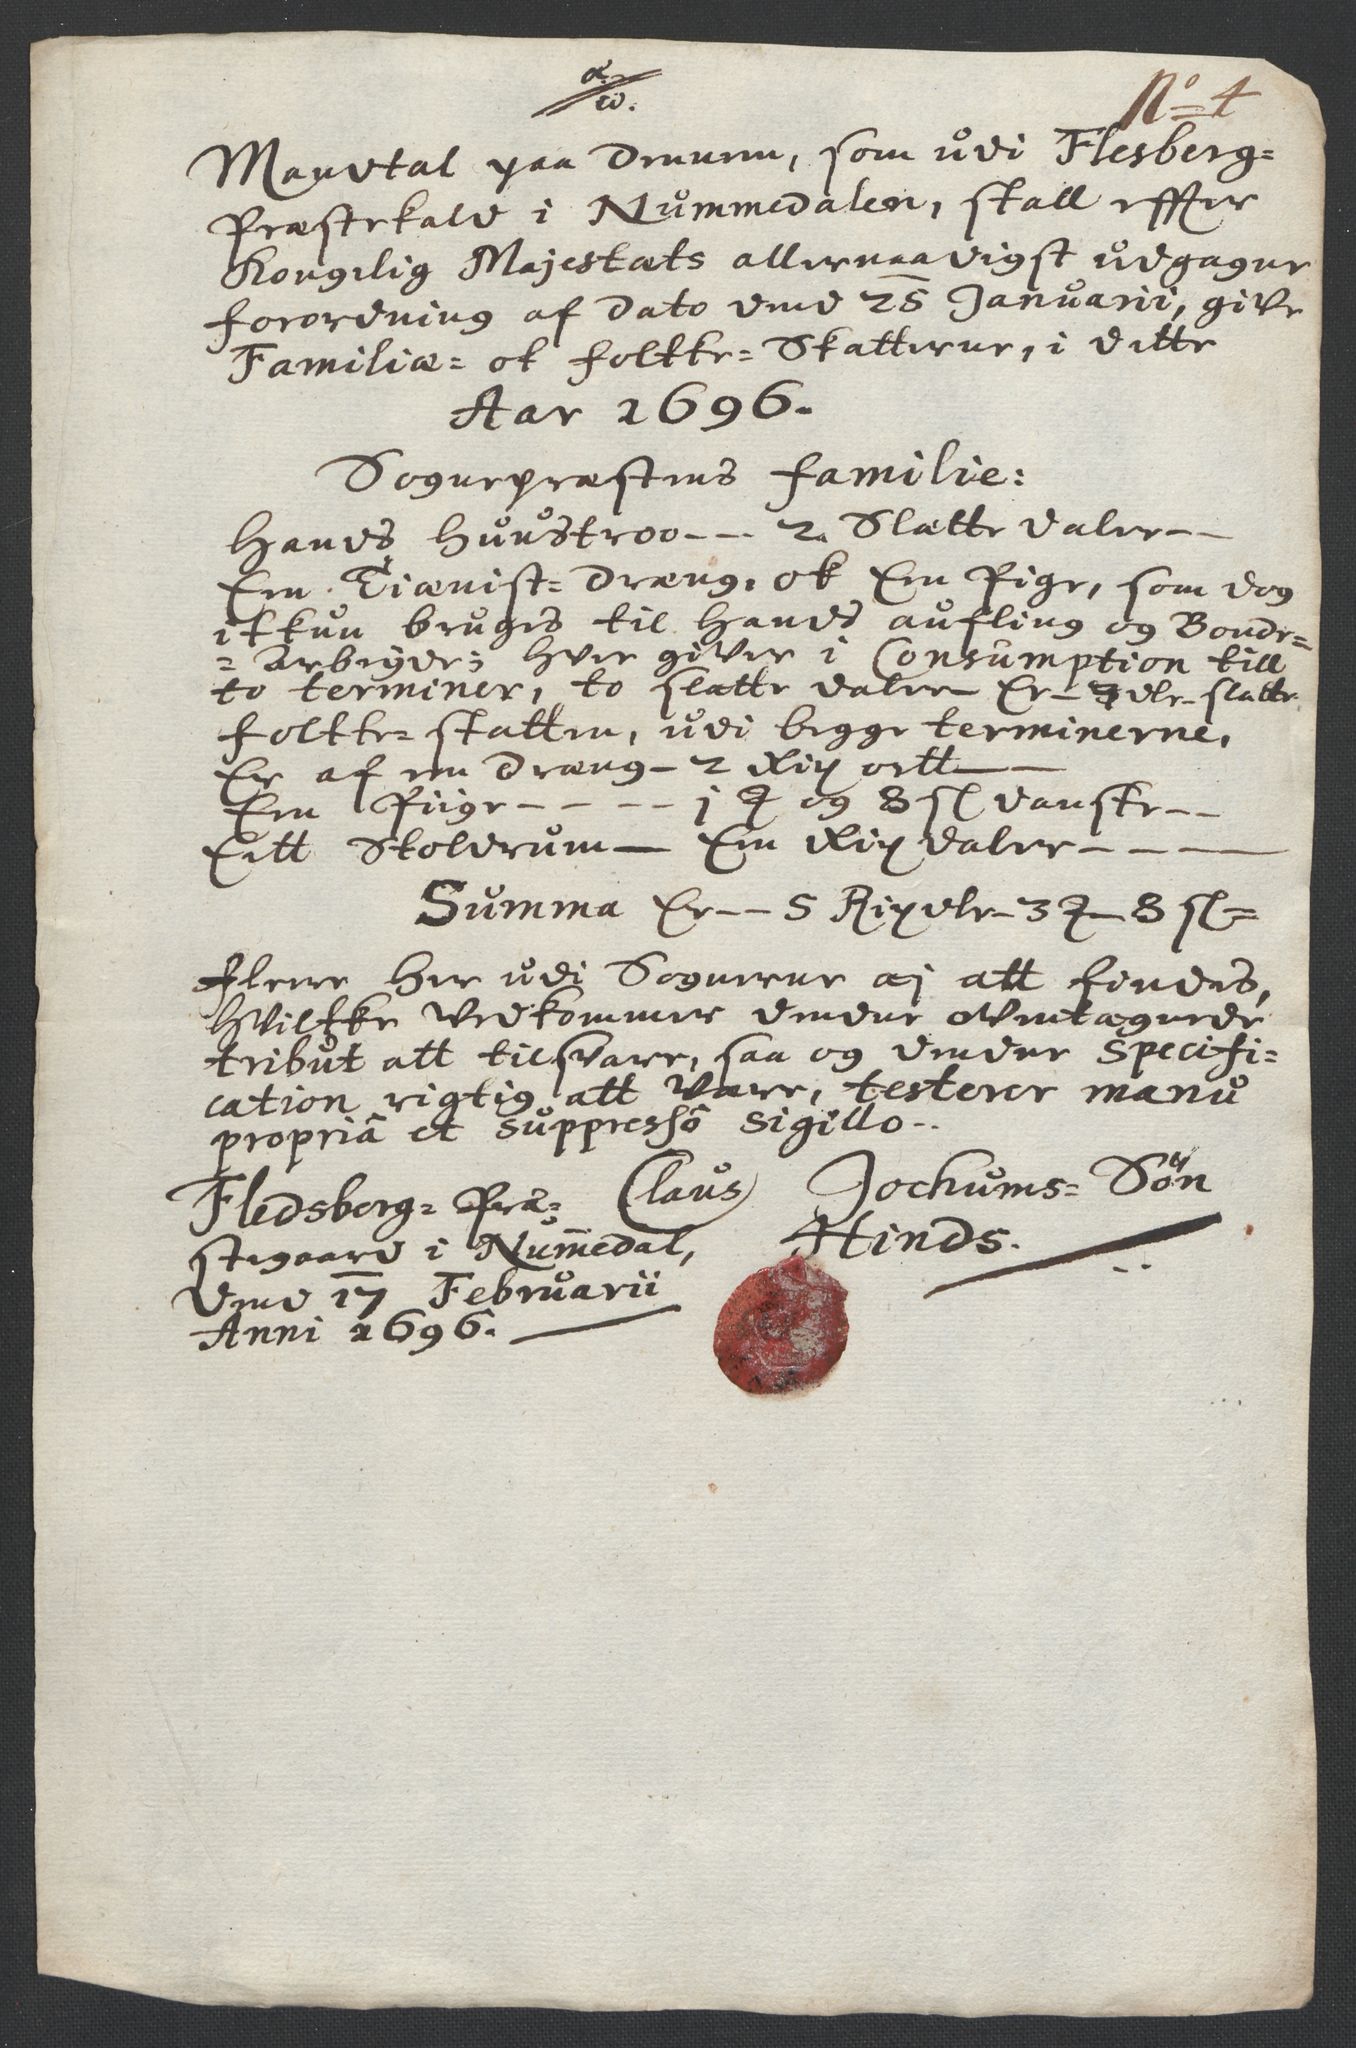 α/ω.
No 4
Mandtal paa dennem, som udi Flesberg=
Præstekald i Nummedalen, skall effter
Kongelig Majestæts allernaadigst udgagne
forordning af dato dend 25 Januarii, give
Familiæ= ok folkke= Skatterne, i dette
Aar 1696.
Sognepræstens familie:
Hands Huustroo--- 2. Slætte daler--
Een Tiænist= dræng, ok Een Pige, som dog
ikkun bruges til hands aufling og Bonde=
=arbeyde; hver giver i Consumption till
to terminer, to slætte daler Er - 3 dlr- slætte.
folkke= skatten, udi begge terminerne,
Er af en dræng - 2 Rix ortt
Een Piige - - - - 1 ⅔ og 8 sl danske--
Eett Skoldrum - Een Rixdaler - - - -
Summa Er -- 5 Rixdlr- 3 ⅔- 8 sl=
flere her udi Sognerne æj att findes,
hvilkke vedkommer dendne ommelægede
tribut att tilsvare, saa og dendne Specifi=
cation rigtig att være, testerer manu
propriâ et suppressô sigillo..
Fledsberg= Præ=
stegaard i Nummedal,
dend 17 Februarii
Anni 1696.
Claus Jochums= Søn
Hinds.